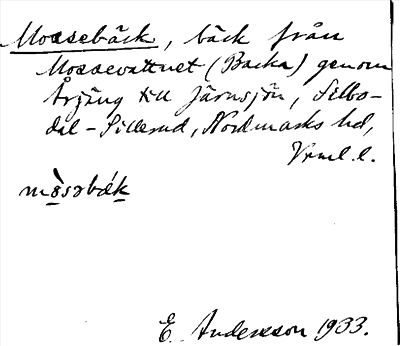 Mossebäck, bäck från
Mossevattnet (Backa) genom
Årjäng till Järnsjön, Silbo-
dal-Sillerud, Nordmarks hd,
Vrml. l.
mòsəbǽk
E. Andersson 1933.